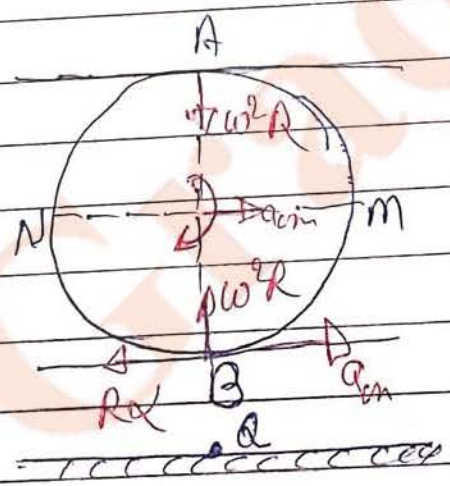 A
ω²R
N
a_cm
M
ω²R
Rα
B
a_cm
Q